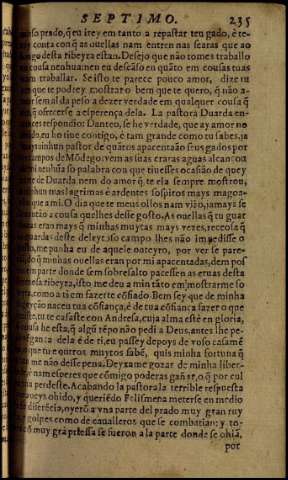 SEPTIMO. 235
so prado, q̃ eu irey em tanto a repastar teu gado, è te-
conta con q̃ as ouellas nam entren nas searas que ao
desta ribeyra estan. Desejo que não tomes traballo
cousa nenhuma en descãso en quãto em cousas tuas
traballar. Se isto te parece pouco amor, dize tu
que te podrey mostrar o bem que te quero, q̃ não a-
sem al da peso a dezer verdade em qualquer cousa q̃
offercese a esperença dela. La pastora Duarda en-
ces respondio: Danteo, se he verdade, que ay amor no
do, eu ho tiue contigo, è tam grande como tu sabes, ja
ninhun pastor de quãtos apacentão seus gados por
campos de Mõdego, vem as suas craras aguas alcançou
ninhũa so palabra con que tiuesses ocasião de quey
te de Duarda, nem do amor q̃ te ela sempre mostrou,
ninguem tuas lagrimas è ardentes sospitos mays magoa-
que a mi. O dia que te meus ollos nam vião, jamays se
a cousa que lhes desse gosto. As ouellas q̃ tu guar
eran mays q̃ minhas muytas mays vezes, receosa q̃
guardas deste deleytoso campo lhes não impedisse o
to, me punha eu de aquele outeyro, por ver se pare-
do q̃ minhas ouellas eran por mi apacentadas, dem pos
em parte donde sem sobresalto pacessen as eruas desta
ribeyra, isto me deu a min tãto em mostrarme so
como a ti em fazerte cõfiado. Bem sey que de minha
ção naceu tua cõfiança, è de tua cõfiança fazer o que
te, tu te casaste con Andresa, cuja alma està en gloria,
sa he esta, q̃ algũ tẽpo não pedi a Deus, antes lhe pe-
gança dela è de ti, eu passey depoys de voso casamẽ
que tu e outros muytos sabẽ, quis minha fortuna q̃
me não desse pena. Deyxame gozar de minha liber-
esperes que comigo poderas gañar, o q̃ por cul
perdeste. Acabando la pastora la terrible respuesta
aueys ohido, y queriẽdo Felismena meterse en medio
la diferẽcia, oyerõ a vna parte del prado muy gran ruy
golpes como de caualleros que se combatian: y to-
muy grã priessa se fueron a la parte donde se ohiã,
por